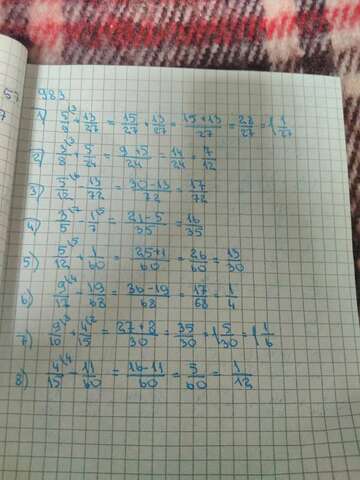 983
1) 5/9 + 13/27 = 15/27 + 13/27 = 15+13/27 = 28/27 = 1 1/27
2) 3/8 + 5/24 = 9+5/24 = 14/24 = 7/12
3) 5/12 - 13/72 = 30-13/72 = 17/72
4) 3/5 - 1/7 = 21-5/35 = 16/35
5) 5/12 + 1/60 = 25+1/60 = 26/60 = 13/30
6) 9/17 - 19/68 = 36-19/68 = 17/68 = 1/4
7) 9/10 + 4/15 = 27+8/30 = 35/30 = 1 5/30 = 1 1/6
8) 4/15 - 11/60 = 16-11/60 = 5/60 = 1/12